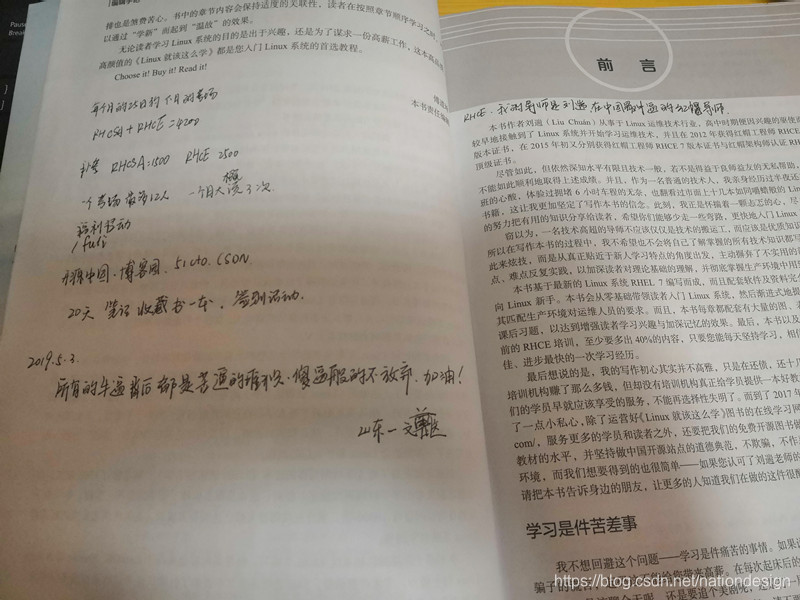 编辑手记
排也是煞费苦心。书中的章节内容会保持适度的关联性，读者在按照章节顺序学习之时
以通过“学新”而起到“温故”的效果。
无论读者学习 Linux 系统的目的是出于兴趣，还是为了谋求一份高薪工作，这本高品
高颜值的《Linux 就该这么学》都是您入门 Linux 系统的首选教程。
Choose it! Buy it! Read it!
本书责任编
每个月的25日约个月的考场
RHCSA + RHCE = 4200
补考 RHCSA=1500 RHCE 2500
一个考场 最多12人 一个月 3次
福利活动
/fuli
开源中国、博客园、51cto、CSDN
20天 笔记 收藏 书一本，签到活动.
2019.5.3.
所有的牛逼背后都是苦逼的 傻逼般的不放弃.加油!
山东一
前 言
RHCE. 我的导师是刘遄 在中国 红帽导师.
本书作者刘遄（Liu Chuán）从事于 Linux 运维技术行业，高中时期便因兴趣的驱使而
较早地接触到了 Linux 系统并开始学习运维技术，并且在 2012 年获得红帽工程师 RHCE
版本证书，在 2015 年初又分别获得红帽工程师 RHCE 7 版本证书与红帽架构师认证 RH
顶级证书。
尽管如此，但依然深知水平有限且技术一般，若不是得益于良师益友的无私帮助，
不能如此顺利地取得上述成绩。并且，作为一名普通的技术人，我亲身经历过半夜还
班的心酸，体验过拥堵 6 小时车程的无奈，也翻看过市面上十几本如同嚼蜡般的 Linux
书籍，这让我更加坚定了写作本书的信念。此刻，我正是怀揣着一颗忐忑的心，尽
的努力把有用的知识分享给读者，希望你们能够少走一些弯路，更快地入门 Linux
窃以为，一名技术高超的导师不应该仅仅是技术的搬运工，而应该是优质知识
所以在写作本书的过程中，我不希望也不会将自己了解掌握的所有技术知识都写
此来炫技，而是从真正贴近于新人学习特点的角度出发，主动摒弃了不实用的
点，难点反复实践，以加深读者对理论基础的理解，并彻底掌握生产环境中用
本书基于最新的 Linux 系统 RHEL 7 编写而成，而且配套软件及资料完
向 Linux 新手。本书会从零基础带领读者入门 Linux 系统，然后渐进式地提
其匹配生产环境对运维人员的要求。而且，本书每章都配有大量的图、
课后习题，以达到增强读者学习兴趣与加深记忆的效果。最后，本书以及
前的 RHCE 培训，至少要多出 40%的内容，只要您能每天坚持学习，相信
佳、进步最快的一次学习经历。
最后想说的是，我的写作初心其实并不高雅，只是在还债，还十几
培训机构赚了那么多钱，但却没有培训机构真正给学员提供一本好教
们的学员早就应该享受的服务，不能再选择性失明了。而到了 2017 年
了一点小私心，除了运营好《Linux 就该这么学》图书的在线学习网
com/，服务更多的学员和读者之外，还要把我们的免费开源图书做
教材的水平，并坚持做中国开源站点的道德典范，不欺骗，不作
环境，而我们想要得到的也很简单——如果您认可了刘遄老师的
请把本书告诉身边的朋友，让更多的人知道我们在做的这件很酷
学习是件苦差事
我不想回避这个问题——学习是件痛苦的事情。如果
https://blog.csdn.net/nationdesign